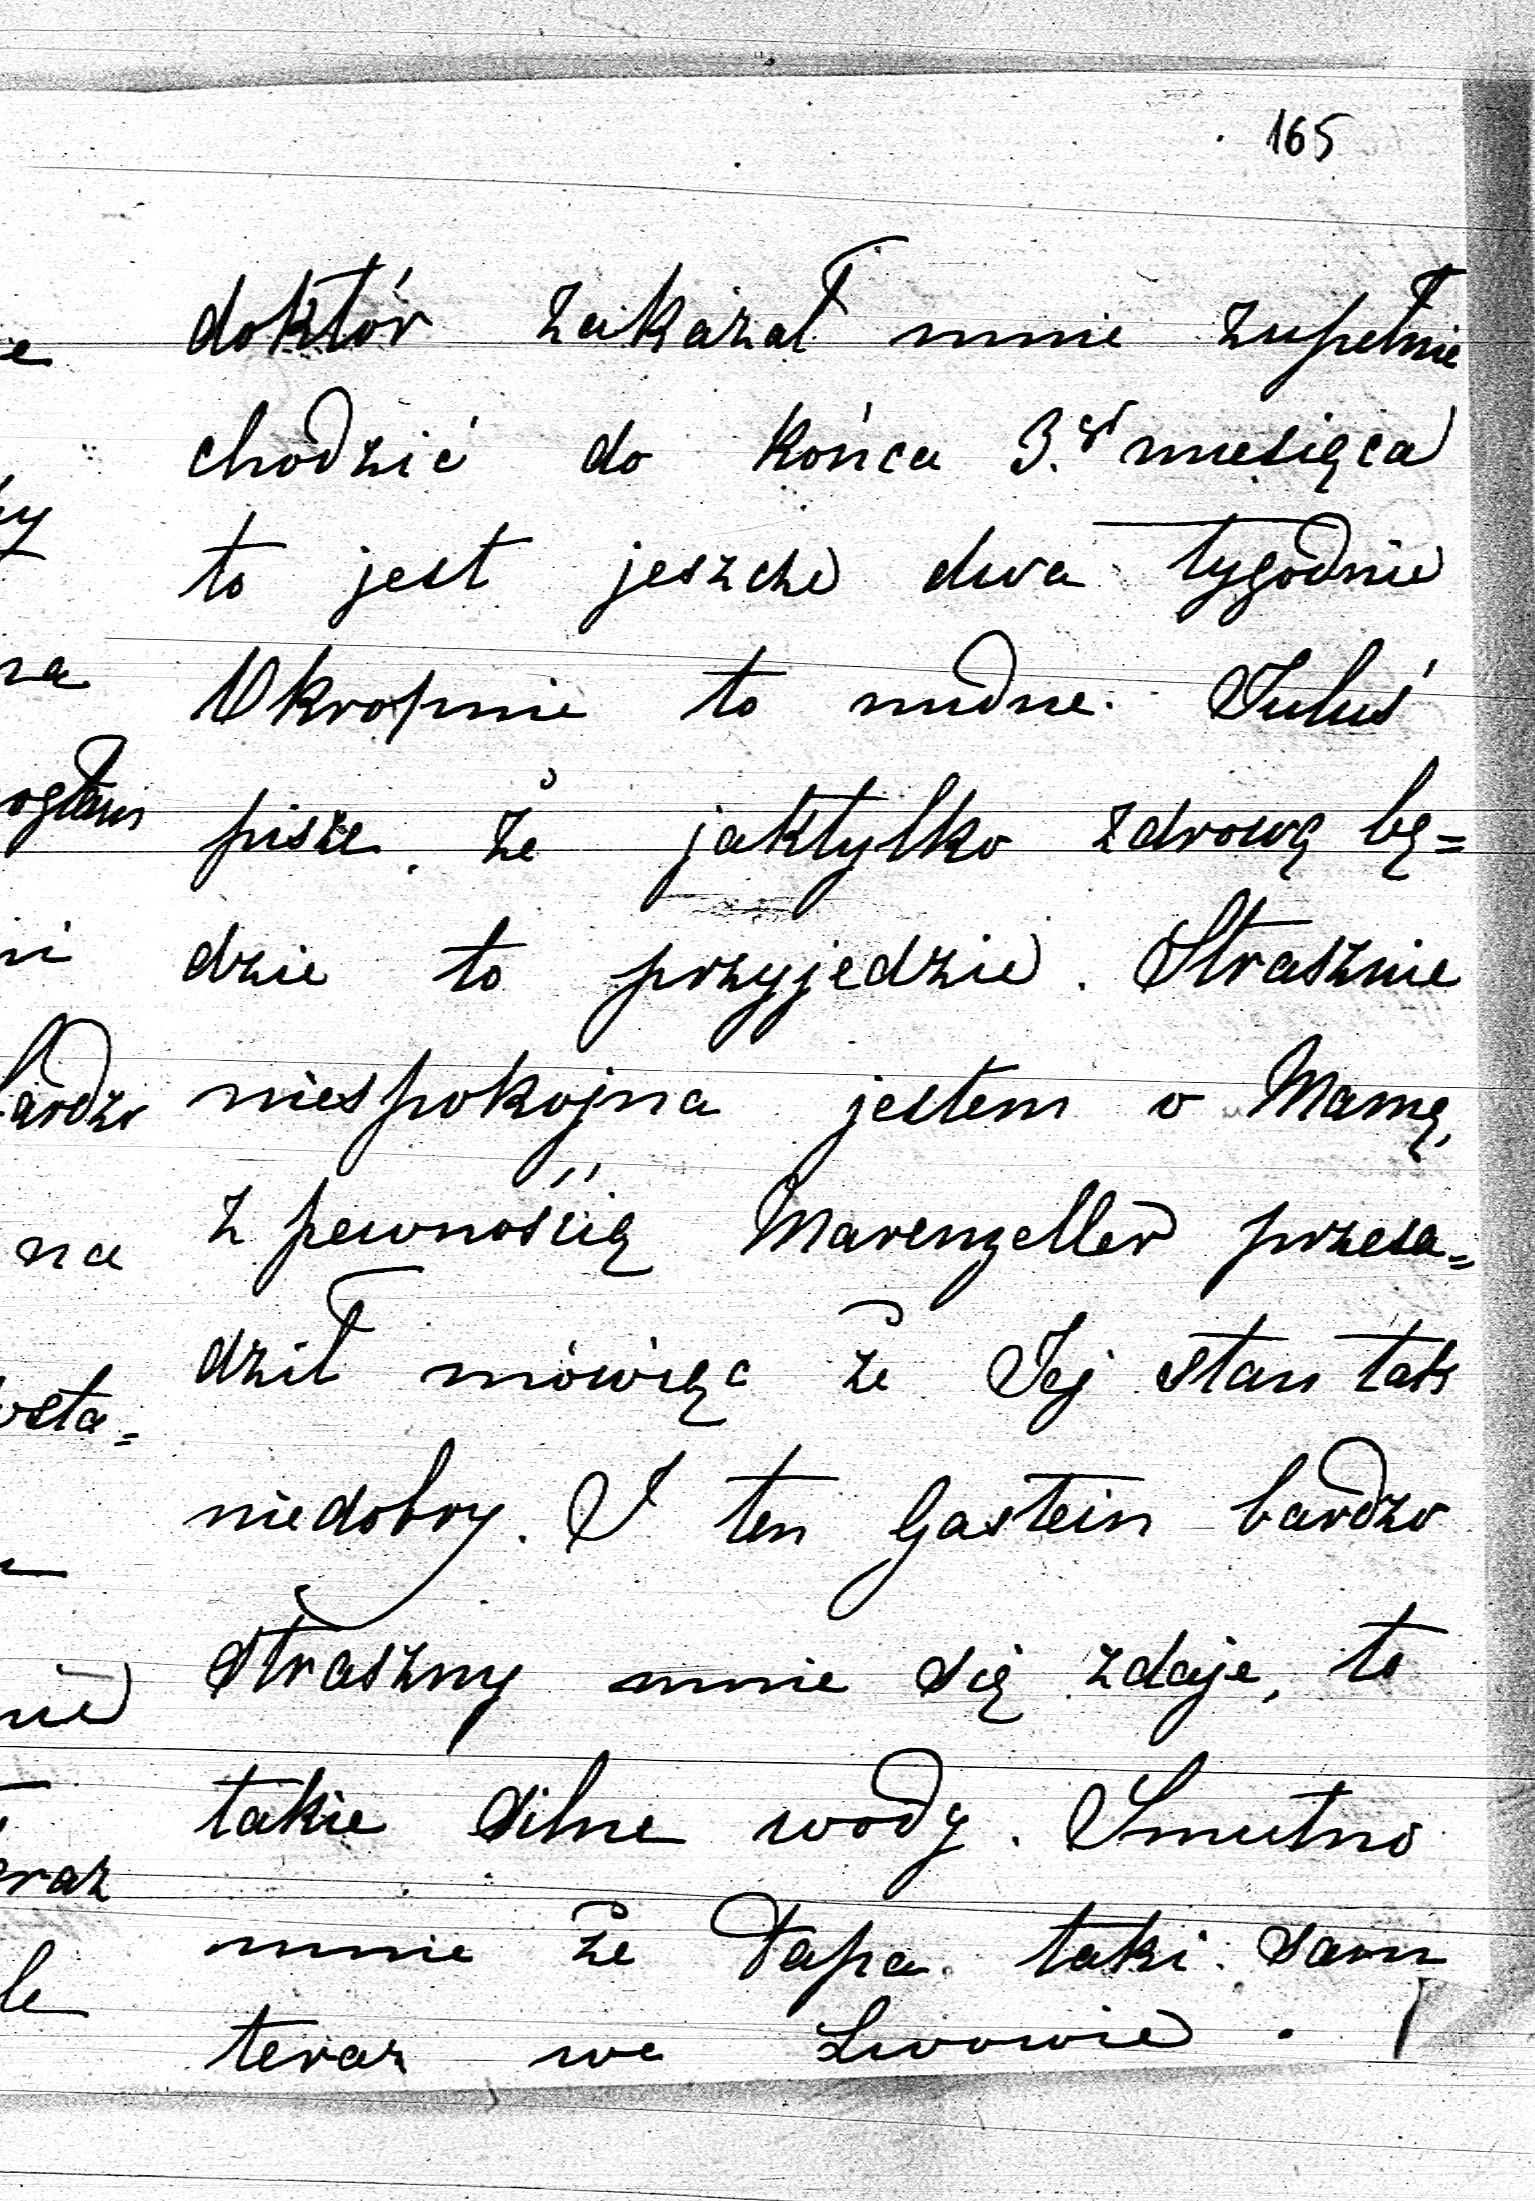 165
doktór zakazał mnie zupełnie
chodzić do końca 3. miesięca
to jest jeszcze dwa tygodnie
Okropnie to nudne. Juluś
pisze, że jaktylko zdrową bę=
dzie to przyjedzie. Strasznie
niespokojna jestem o Mamę,
z pewnością Marenzeller przesa=
dził mówiąc że Jej stan tak
niedobry. I ten Gastein bardzo
straszny mnie się zdaje, to
takie silne wody. Smutno
mnie że Papa taki sam
teraz we Lwowie.